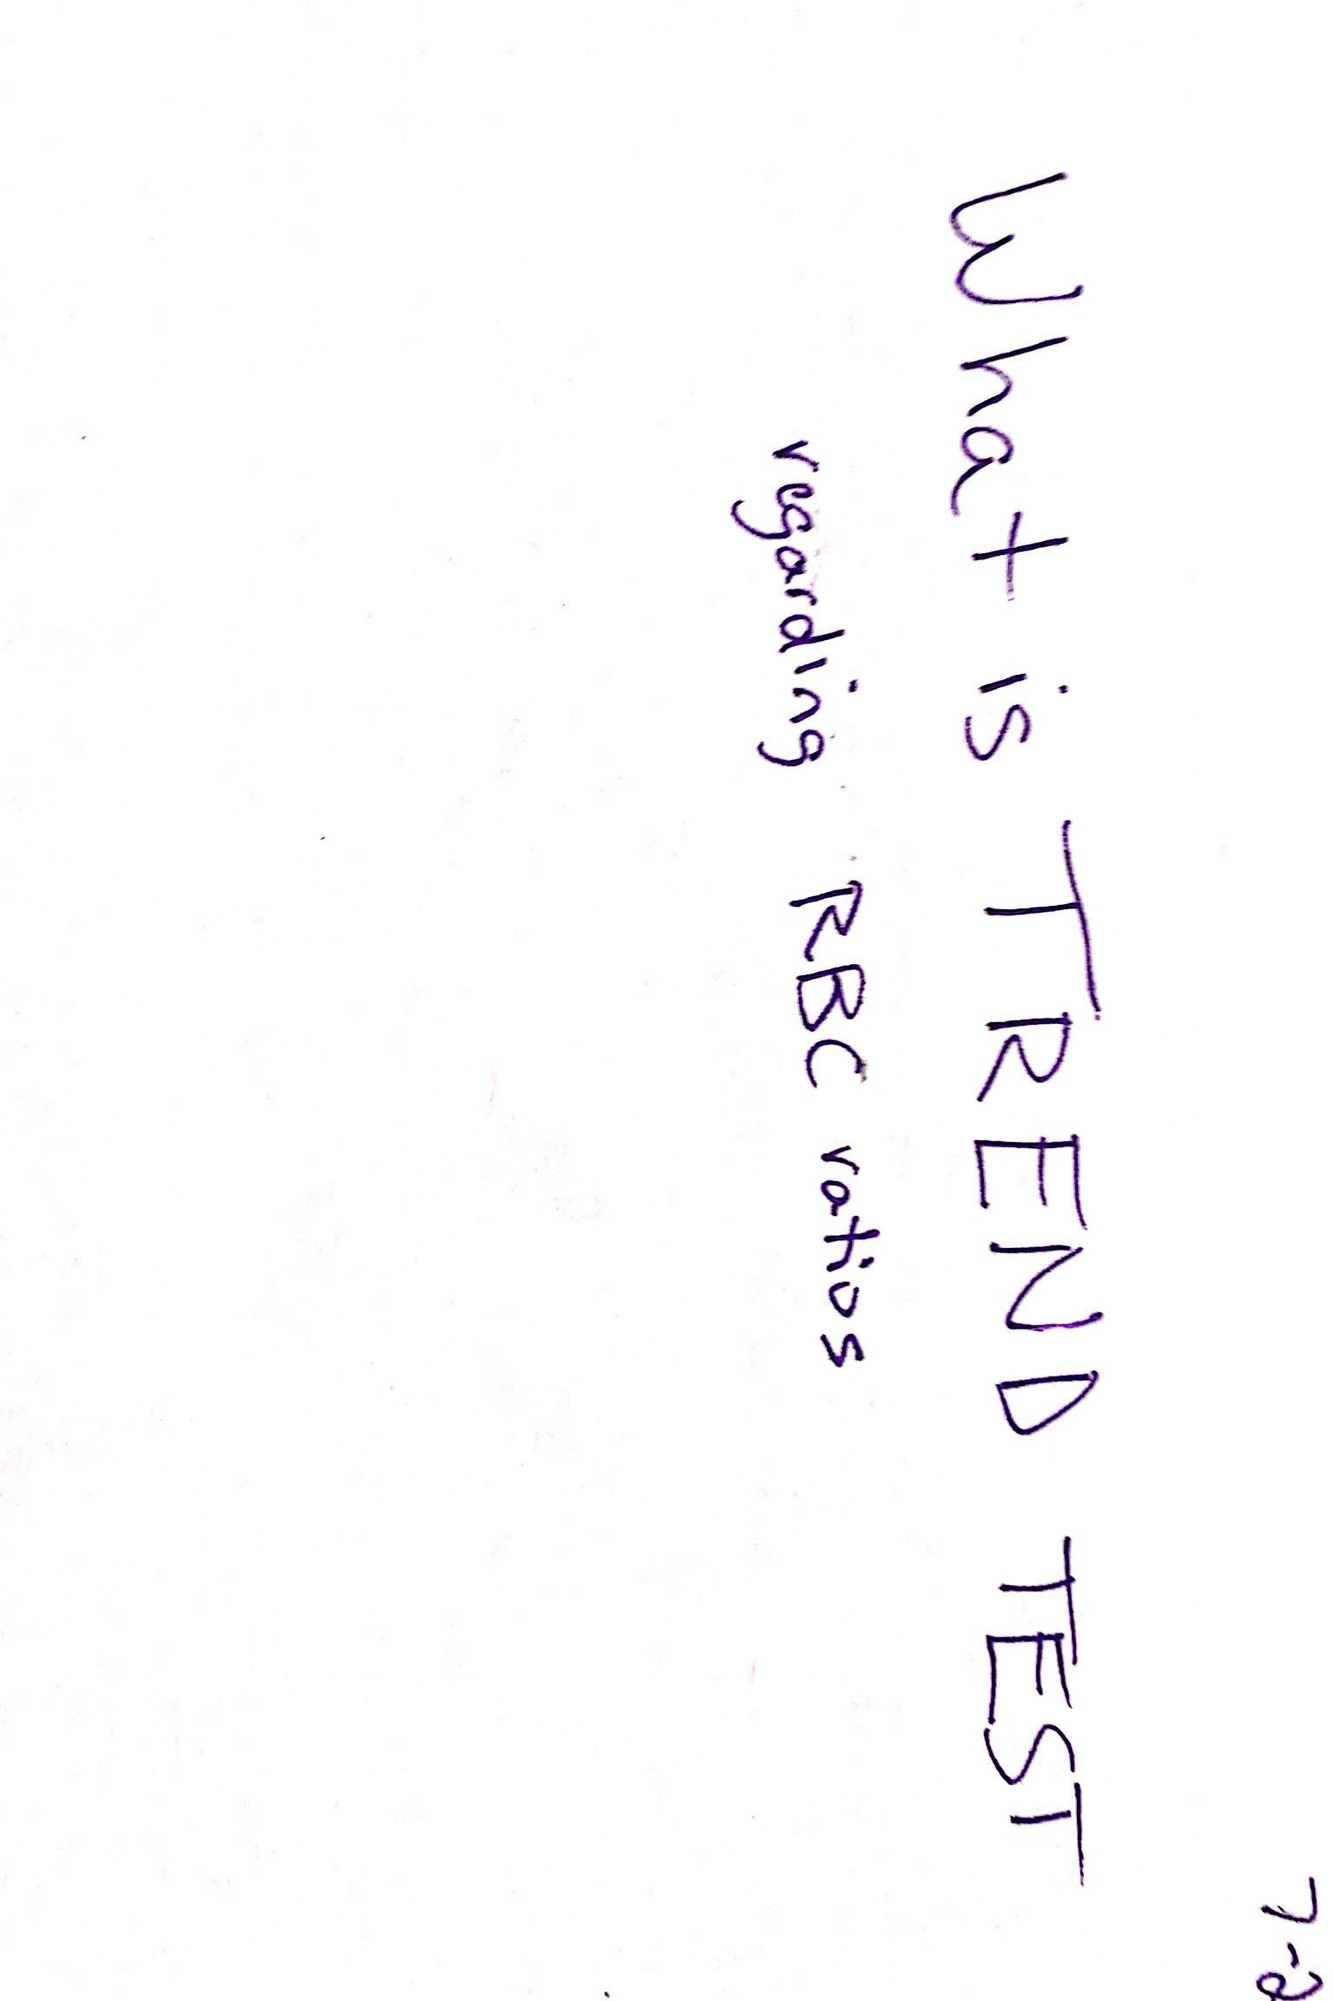 7-2
What is TREND TEST
regarding RBC ratios